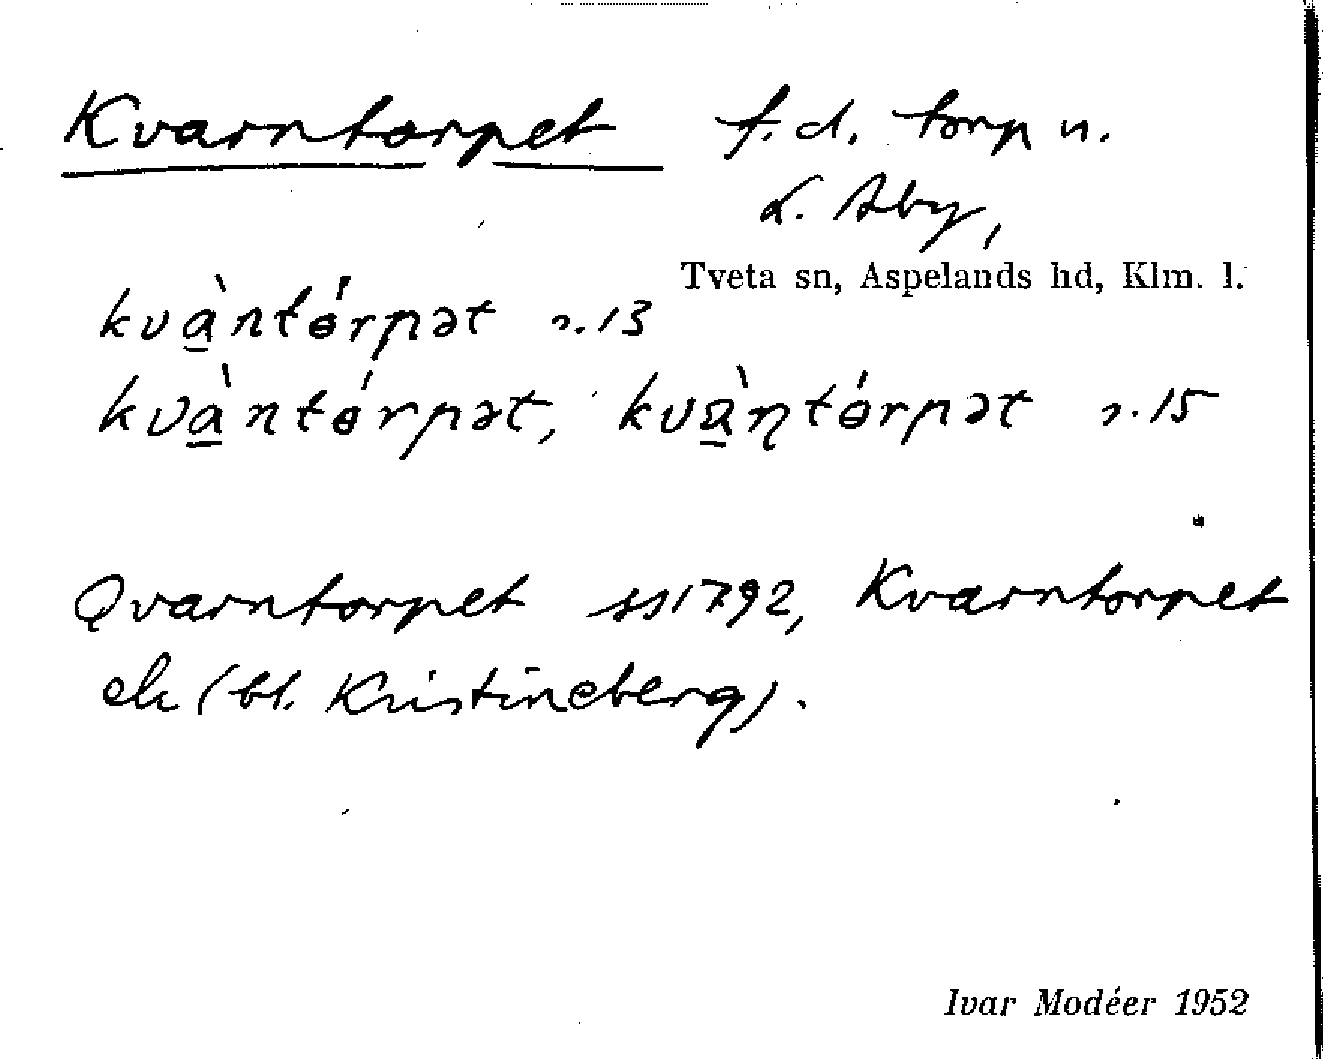 Kvarntorpet f.d. torp u.
L. Åby,
Tveta sn, Aspelands hd, Klm. l.
kvà̱ntɵ́rpət s. 13
kvà̱ntɵ́rpət, kvà̱ɳtɵ́rpət s. 15
Qvarntorpet ss 1792, Kvarntorpet
ek (bl. Kristineberg).
Ivar Modéer 1952